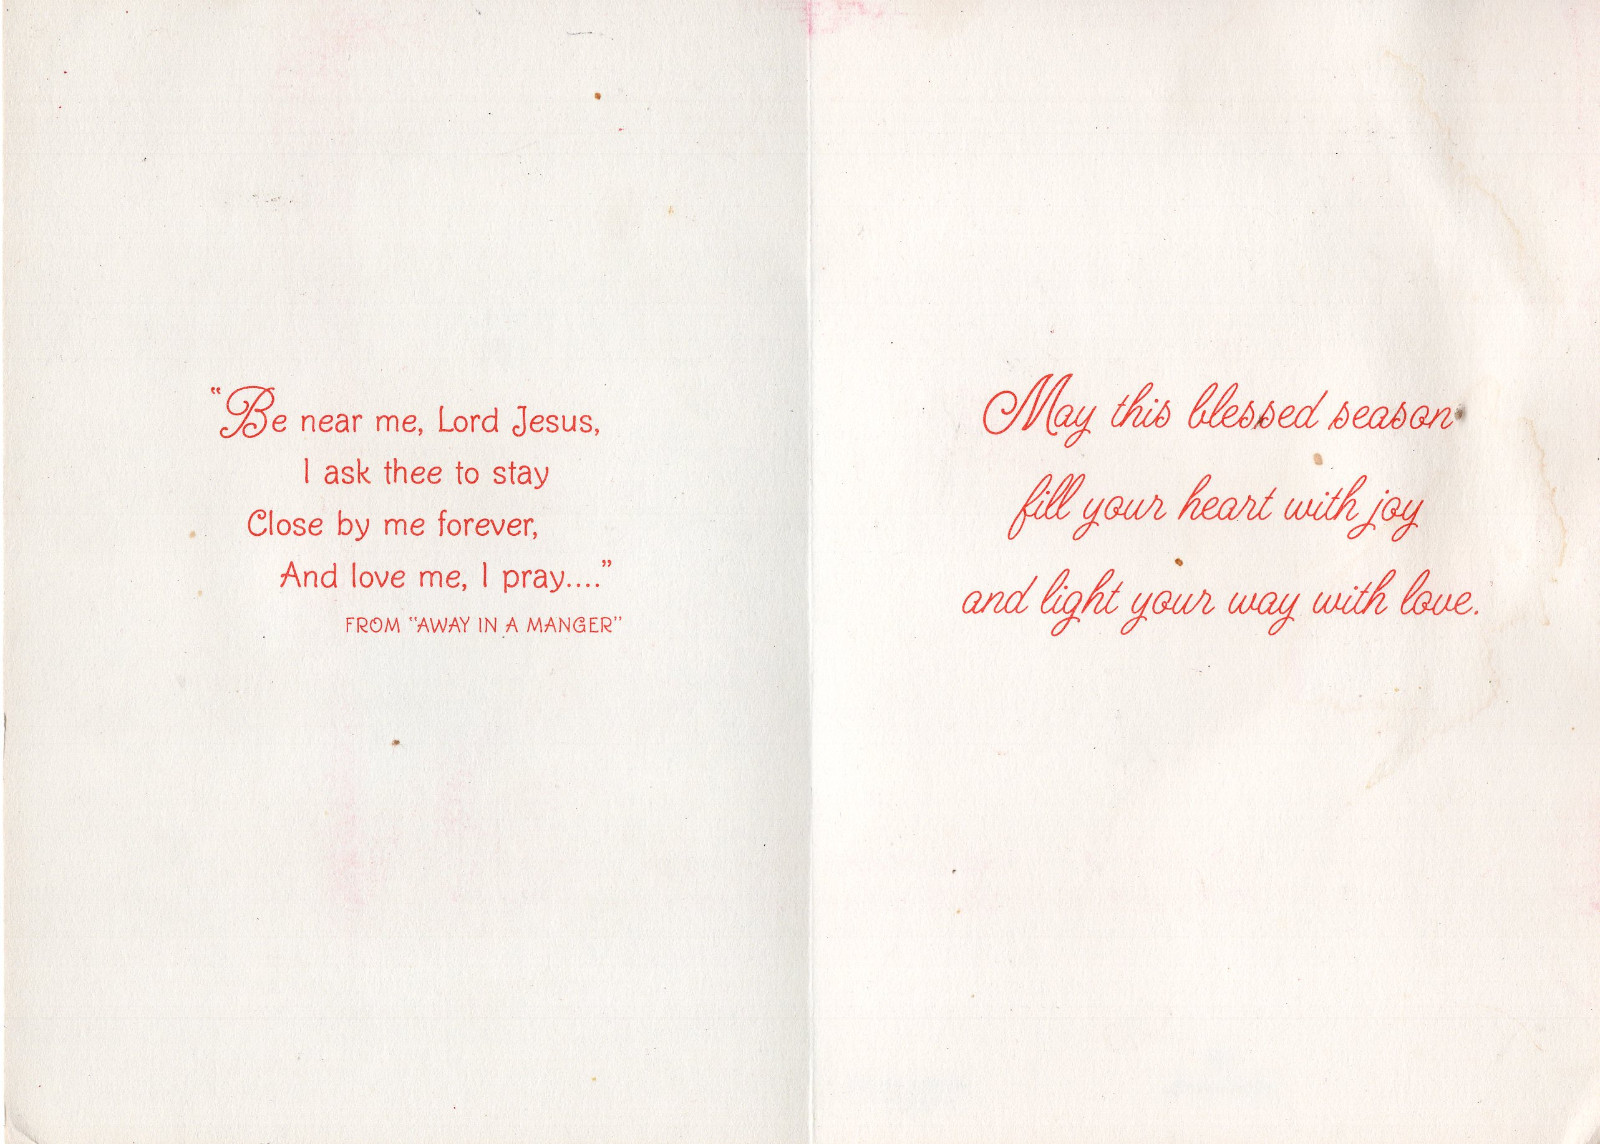 “Be near me, Lord Jesus,
I ask thee to stay
Close by me forever,
And love me, I pray....”
FROM “AWAY IN A MANGER”
May this blessed season
fill your heart with joy
and light your way with love.